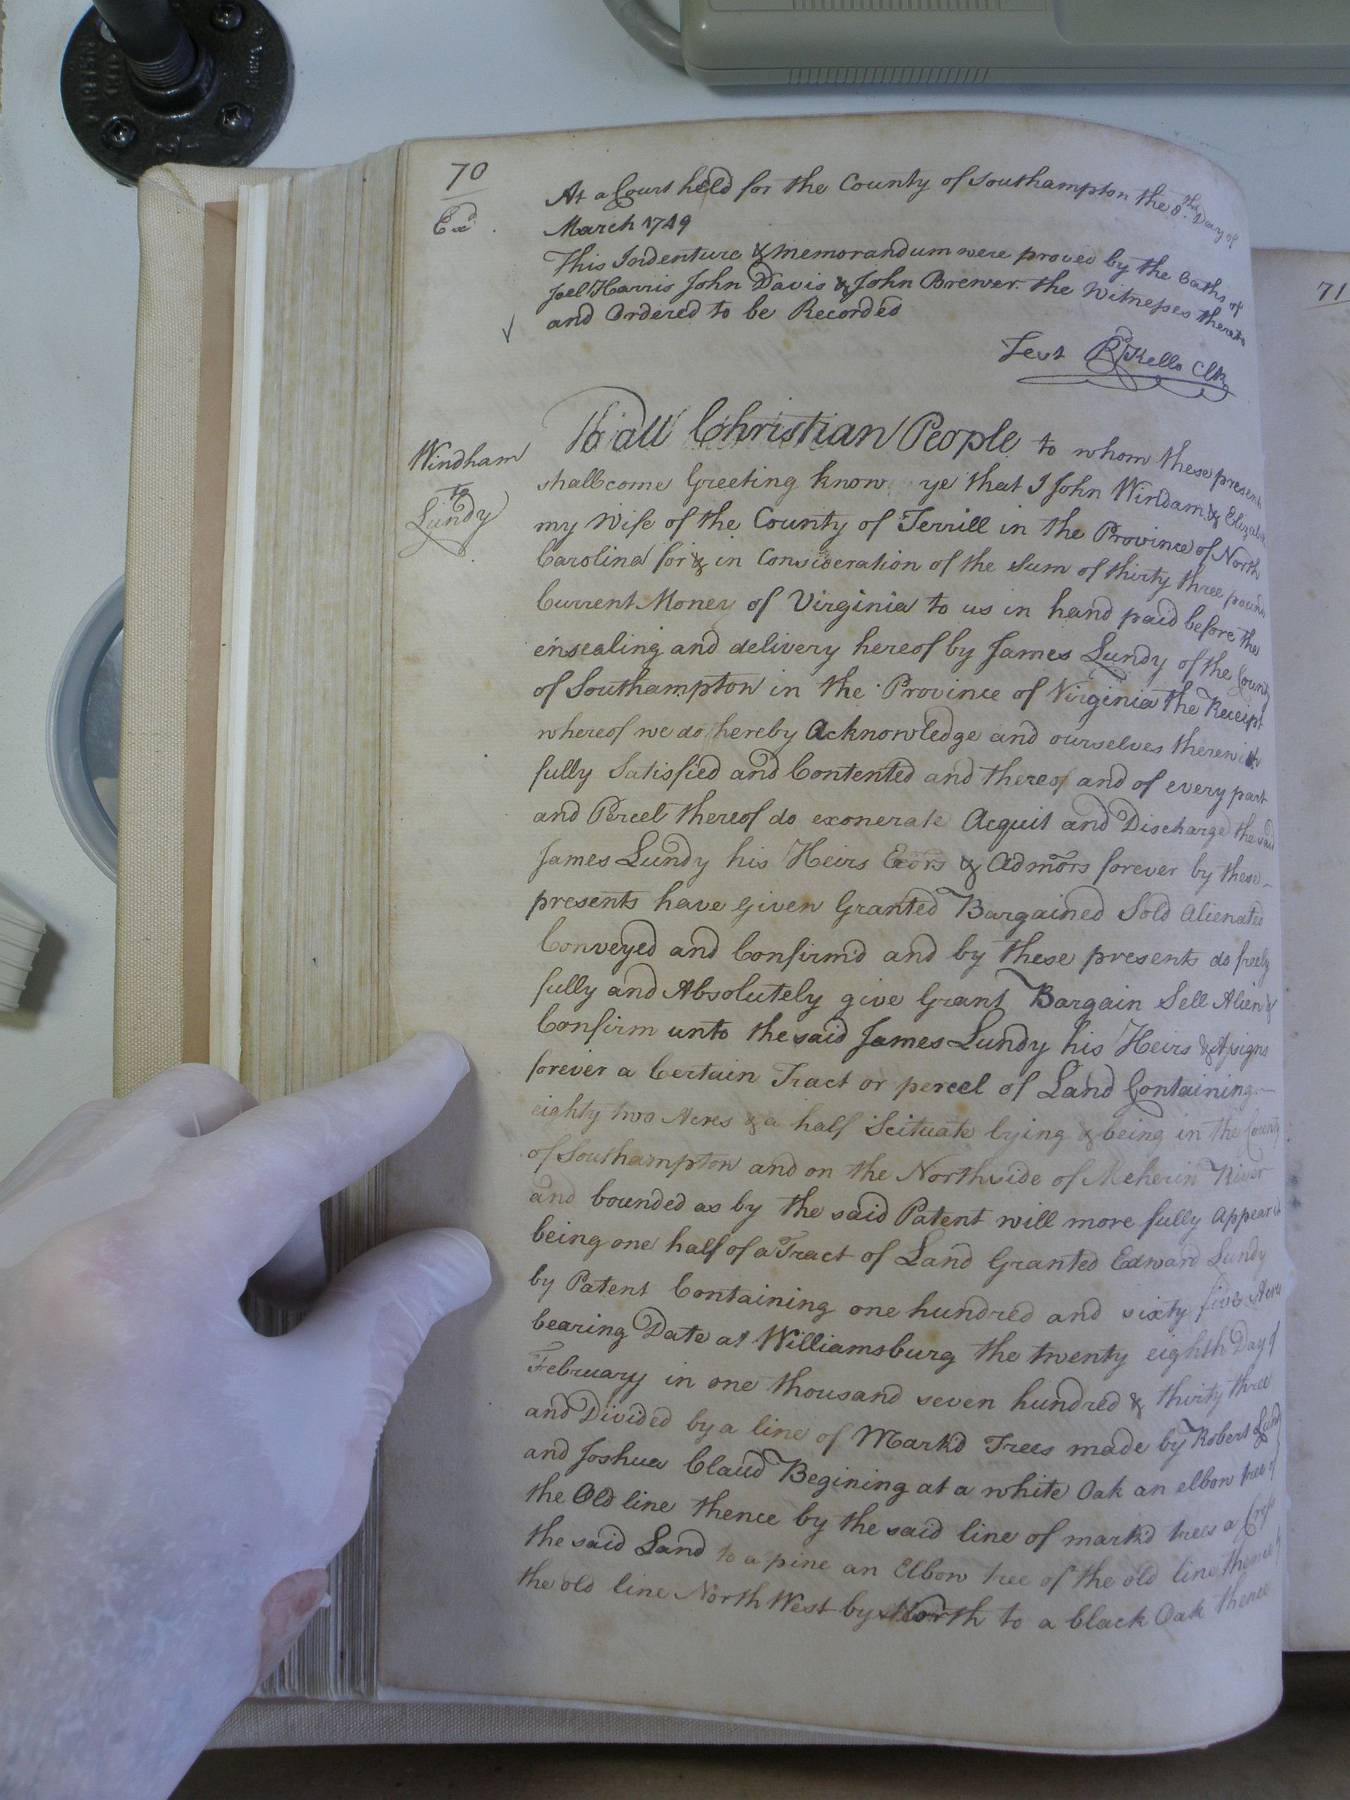 70
Exd.
At a Court held for the County of Southampton the 8th. Day of
March 1749
This Indenture & Memorandum were proved by the Oaths of
Joel Harris John Davis & John Brewer the Witnesses thereto
and Ordered to be Recorded
Test Rd Kello Clk
Windham
to
Lundy
To all Christian People to whom these presents
shall come Greeting know ye that I John Windam & Elizabeth
my Wife of the County of Terrill in the Province of North
Carolina for & in Consideration of the Sum of thirty three pounds
Current Money of Virginia to us in hand paid before the
ensealing and delivery hereof by James Lundy of the County
of Southampton in the Province of Virginia the Receipt
whereof we do hereby Acknowledge and ourselves therewith
fully Satisfied and Contented and thereof and of every part
and Percel thereof do exonerate Acquit and Discharge the said
James Lundy his Heirs Exors & Admors forever by these
presents have given Granted Bargained Sold Alienated
Conveyed and Confirm'd and by these presents do freely
fully and Absolutely give Grant Bargain Sell Alien &
Confirm unto the said James Lundy his Heirs & Assigns
forever a Certain Tract or percel of Land Containing
eighty two Acres & a half Scituate lying & being in the County
of Southampton and on the North side of Meherin River
and bounded as by the said Patent will more fully Appear it
being one half of a Tract of Land Granted Edward Lundy
by Patent Containing one hundred and sixty five Acres
bearing Date at Williamsburg the twenty eighth Day of
February in one thousand seven hundred & thirty three
and Divided by a line of Markd Trees made by Robert
and Joshua Claud Begining at a white Oak an elbow tree of
the Old line thence by the said line of markd trees a Cross
the said Land to a pine an Elbow tree of the old line thence by
the old line North West by North to a black Oak thence
71